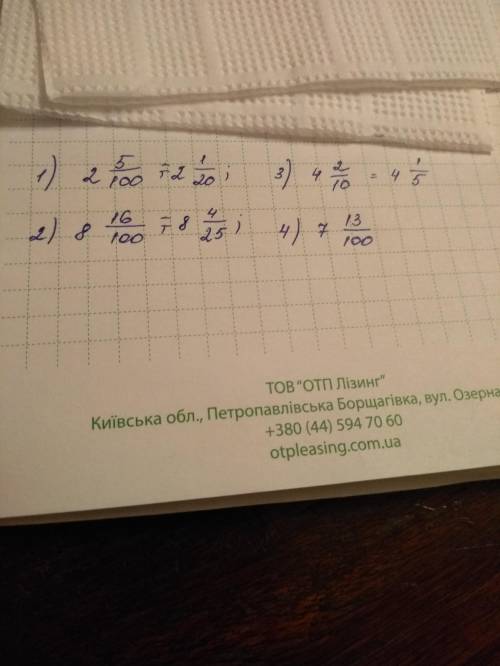 1) 2 5/100 = 2 1/20; 3) 4 2/10 = 4 1/5
2) 8 16/100 = 8 4/25; 4) 7 13/100
ТОВ "ОТП Лізинг"
Київська обл., Петропавлівська Борщагівка, вул. Озерна
+380 (44) 594 70 60
otpleasing.com.ua